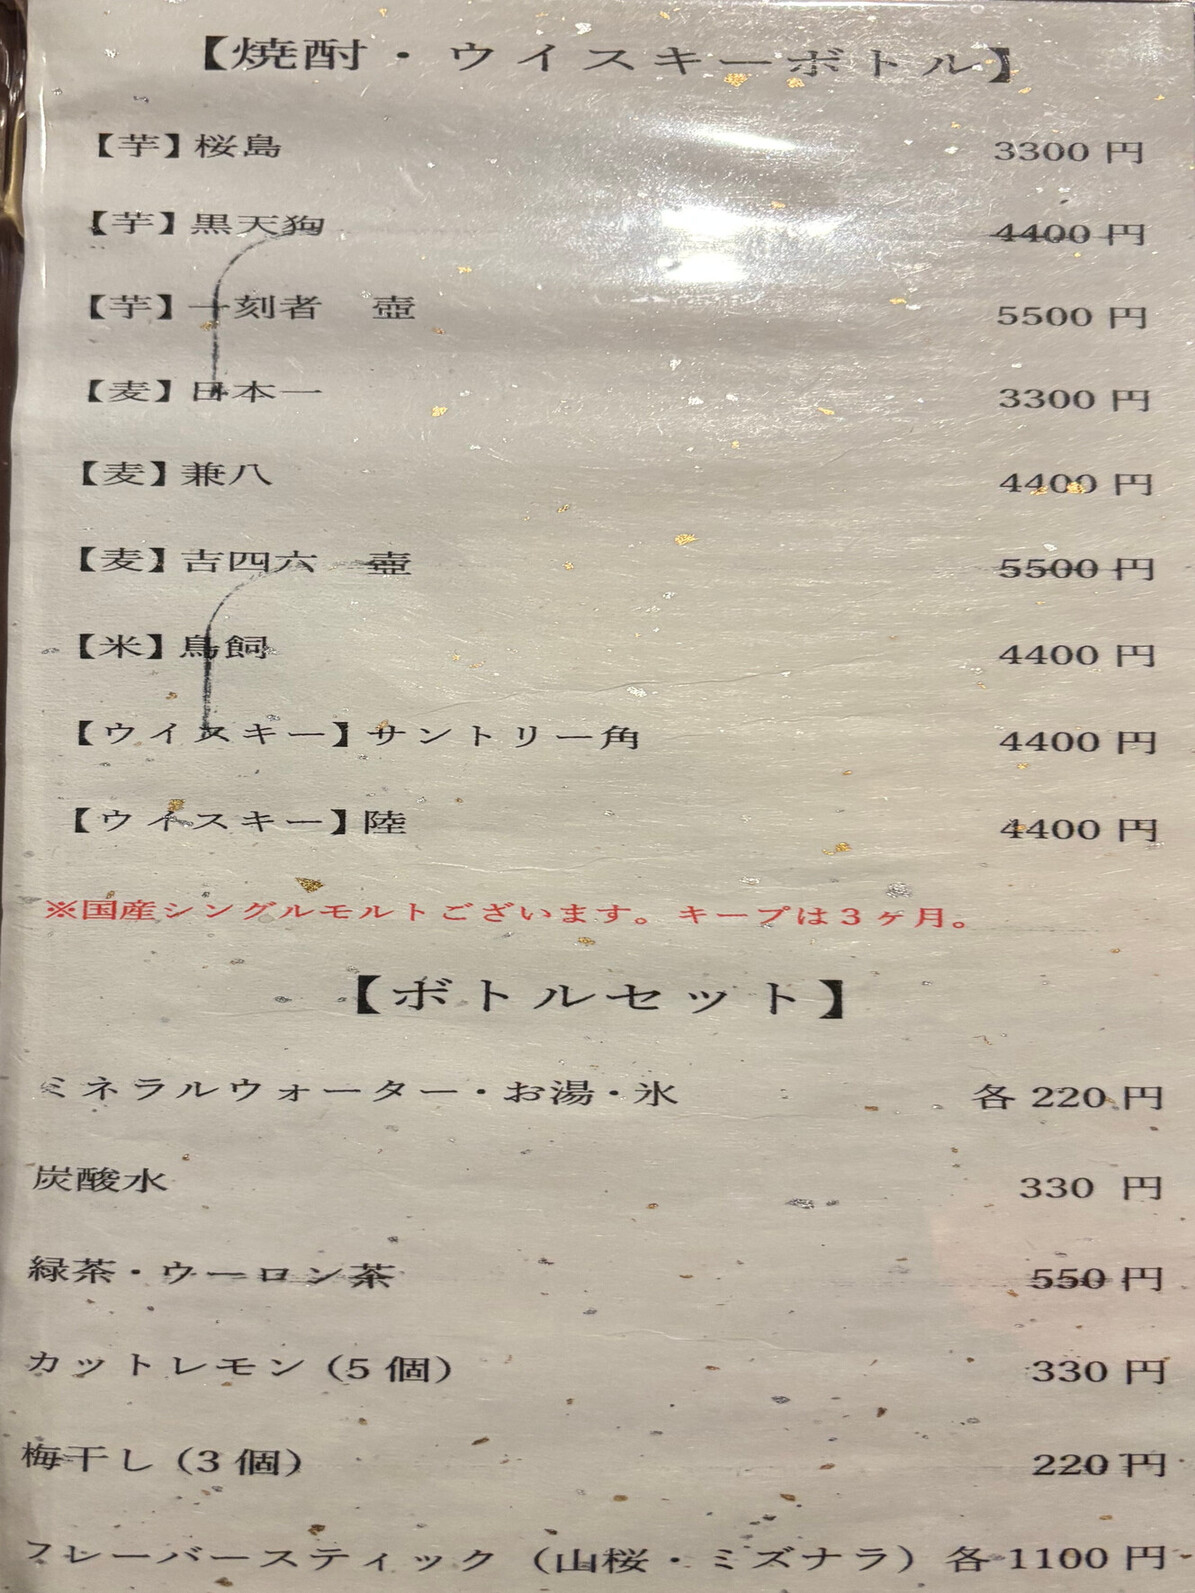 【焼酎・ウイスキーボトル】
【芋】桜島 3300 円
【芋】黒天狗 4400 円
【芋】一刻者 壺 5500 円
【麦】日本一 3300 円
【麦】兼八 4400 円
【麦】吉四六 壺 5500 円
【米】鳥飼 4400 円
【ウイスキー】サントリー角 4400 円
【ウイスキー】陸 4400 円
※国産シングルモルトございます。キープは3ヶ月。
【ボトルセット】
ミネラルウォーター・お湯・氷 各 220 円
炭酸水 330 円
緑茶・ウーロン茶 550 円
カットレモン（5 個） 330 円
梅干し（3 個） 220 円
フレーバースティック（山桜・ミズナラ）各 1100 円